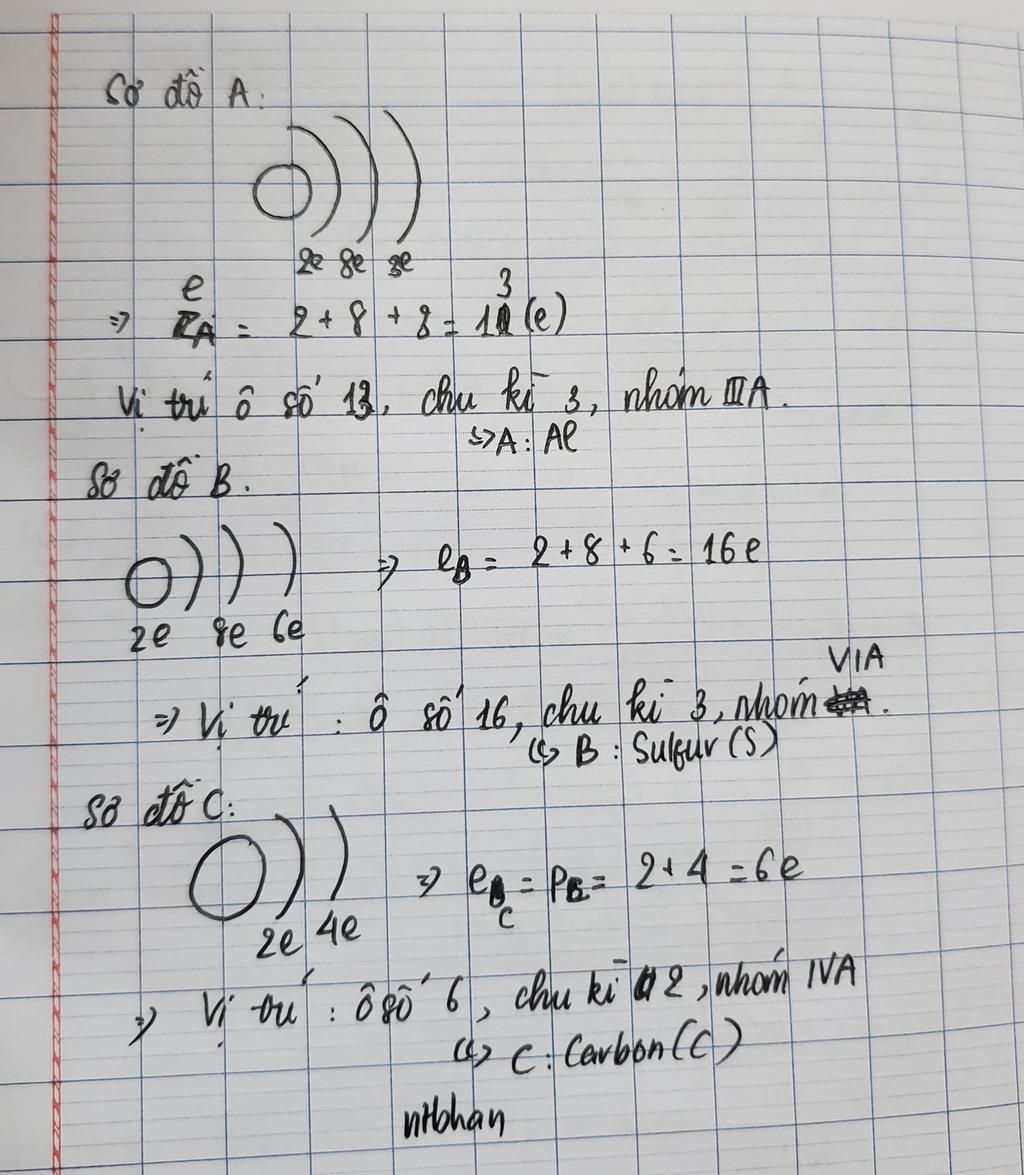 Sơ đồ A:
2e 8e 3e
e
=> A = 2 + 8 + 3 = 13 (e)
Vị trí ô số 13, chu kì 3, nhóm IIIA.
=> A: Al
Sơ đồ B.
=> eB = 2 + 8 + 6 = 16e
2e 8e 6e
VIA
=> Vị trí : Ô số 16, chu kì 3, nhóm .
=> B : Sulfur (S)
Sơ đồ C:
=> eC = p = 2 + 4 = 6e
2e 4e
=> Vị trí : Ô số 6, chu kì 2, nhóm IVA
=> C: Carbon (C)